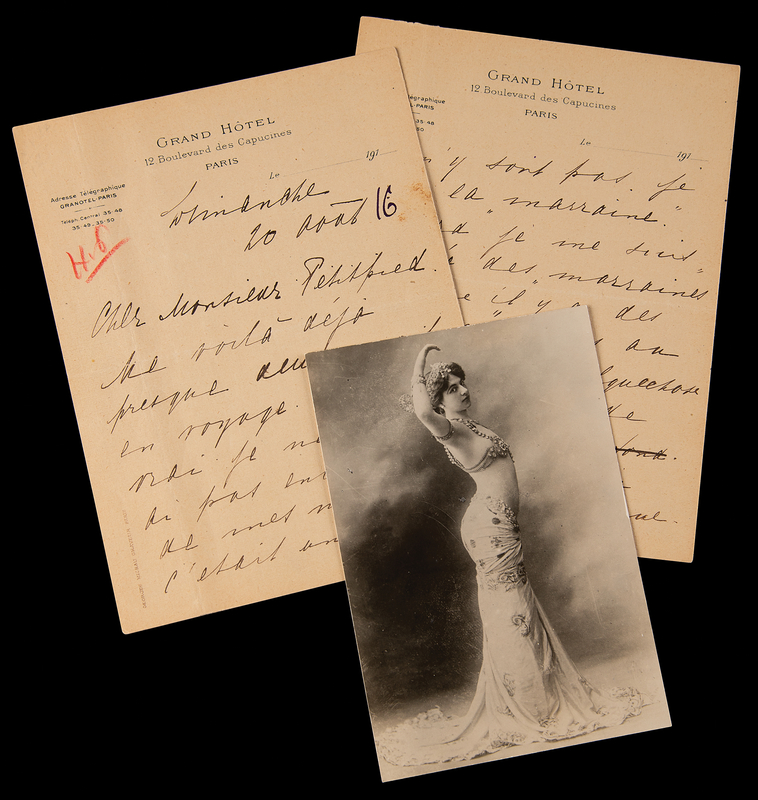 GRAND HÔTEL
12 Boulevard des Capucines
PARIS
Le 191
Adresse Télégraphique
GRANOTEL-PARIS
Téleph. Central 35-48
35-49_35-50
H.6
Dimanche
20 août 16
Cher Monsieur Petitpied.
Me voilà déjà
presque
en voyage.
vrai je
ai pas
de mes
c'était
GRAND HÔTEL
12 Boulevard des Capucines
PARIS
Le 191
légraphique
L-PARIS
35-48
50
n'y sont pas. je
la "marraine."
je me suis
des "marraines
il y a des
au
quechose
de